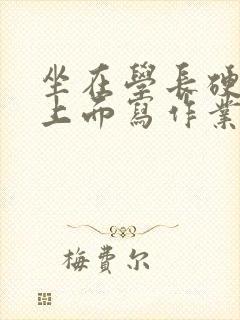 坐在學長硬
上面寫作業
梅費尔